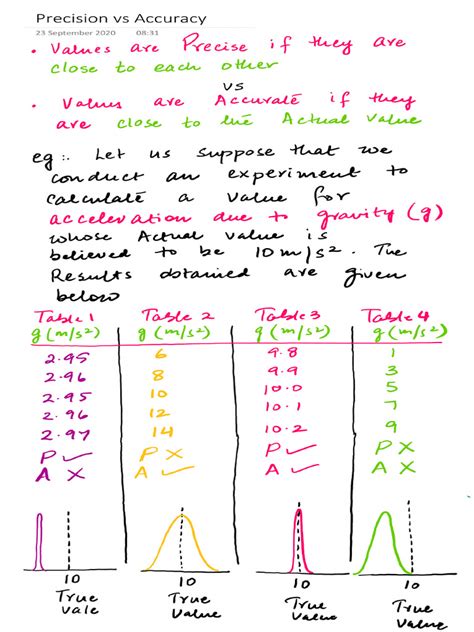 Precision vs Accuracy
23 September 2020 08:31
• Values are Precise if they are
close to each other
vs
• Values are Accurate if they
are close to the Actual value
eg:. Let us suppose that we
conduct an experiment to
calculate a value for
acceleration due to gravity (g)
whose Actual value is
believed to be 10 m/s². The
Results obtained are given
below
Table 1 Table 2 Table 3 Table 4
g (m/s²) g (m/s²) g (m/s²) g (m/s²)
2.95 6 9.8 1
2.96 8 9.9 3
2.95 10 10.0 5
2.96 12 10.1 7
2.97 14 10.2 9
P ✓ P X P ✓ P X
A X A ✓ A ✓ A X
10 10 10 10
True True True True
Vale Value Value Value